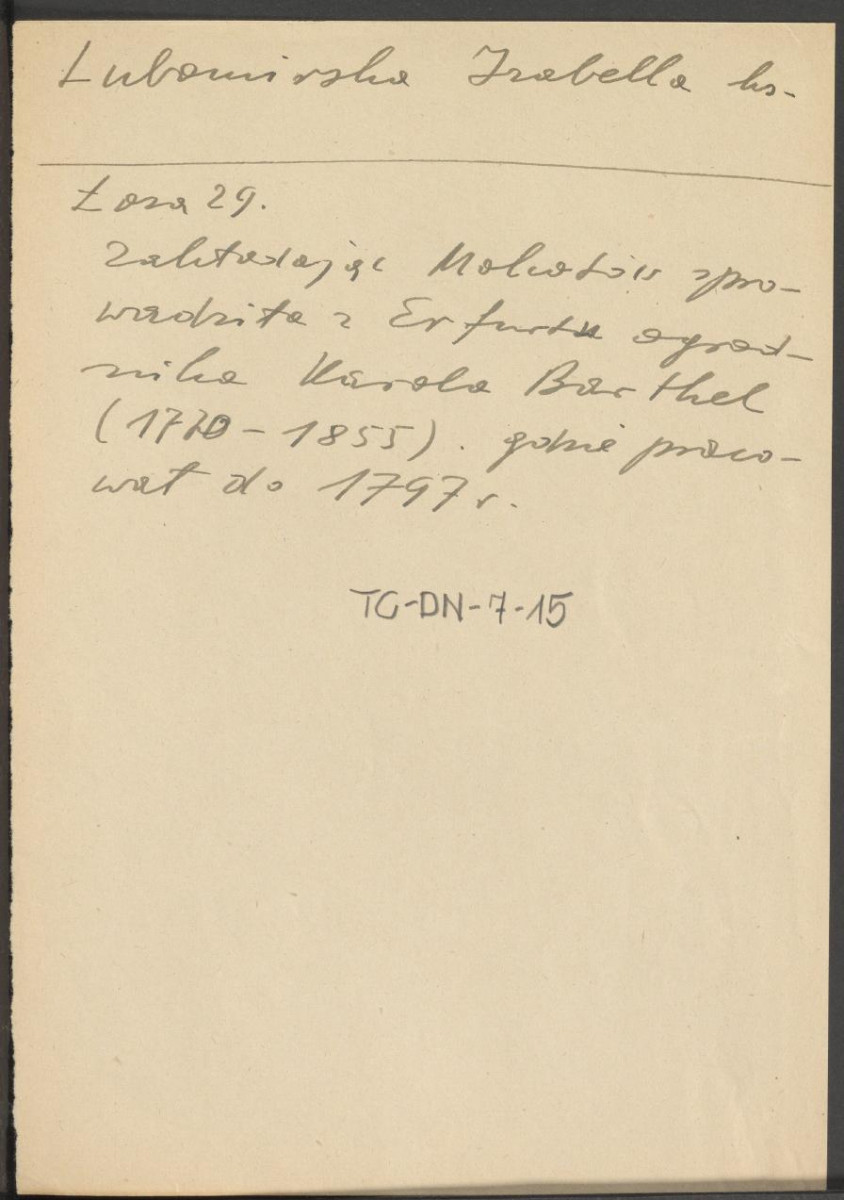 Lubomirska Izabella ks.
Łoza 29.
Zakładając Mokotów spro-
wadziła z Erfurtu ogrod-
nika Karola Barthel
(1770 - 1855). gdzie praco-
wał do 1797 r.
TC-DN-7-15